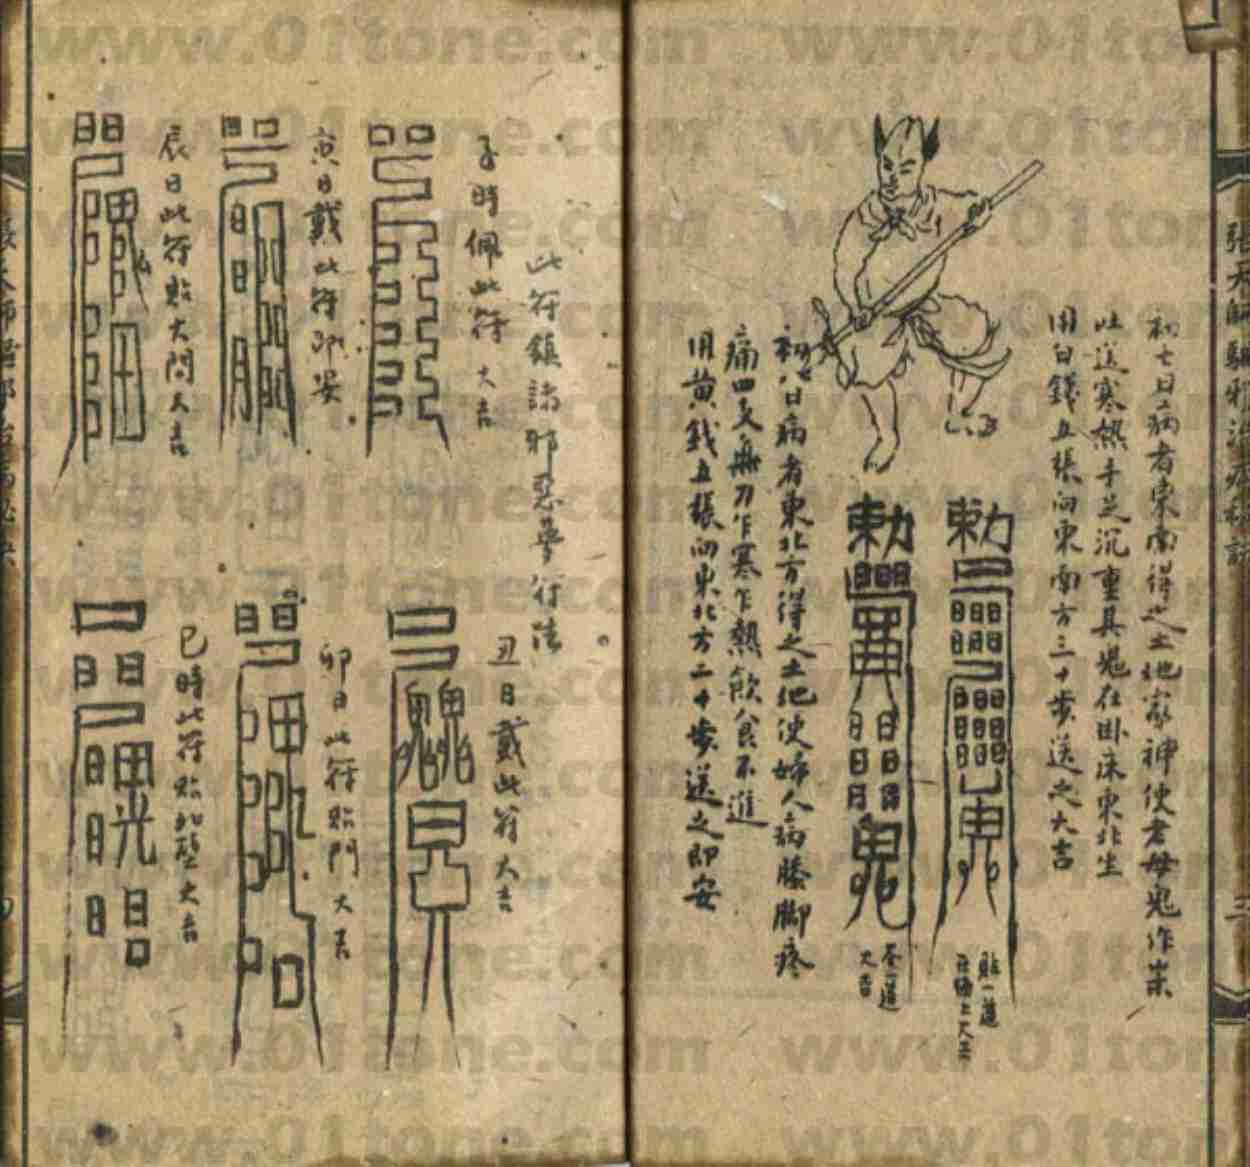 初七日病者東南得之土地家神使老母鬼作祟
吐送寒熱手足沉重其鬼在卧床東北坐
用白錢五張向東南方三十步送之大吉
初八日病者東北方得之土地使婦人病膝腳疼
痛四支無力乍寒乍熱飲食不進
用黄錢五張向東北方二十步送之即安
勅
貼一道
勅
吞一道
大吉
此符鎮諸邪惡夢行法
子時佩此符大吉
丑日戴此符大吉
寅日戴此符即安
卯日此符貼門大吉
辰日此符貼大門大吉
巳時此符貼北壁大吉
張天師驅邪治病秘訣
三
www.01tone.com